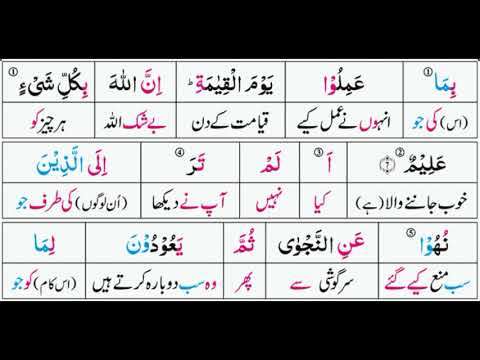 بِمَا ① عَمِلُوْا يَوْمَ الْقِيٰمَةِ ؕ اِنَّ اللّٰهَ بِكُلِّ شَیْءٍ ①
(اس) کی جو انہوں نے عمل کیے قیامت کے دن بے شک اللہ ہر چیز کو
عَلِيْمٌ ② ۷ اَ ③ لَمْ تَرَ ④ اِلَى الَّذِيْنَ
خوب جاننے والا (ہے) کیا نہیں آپ نے دیکھا (اُن لوگوں) کی طرف جو
نُهُوْا ⑤ عَنِ النَّجْوٰى ثُمَّ يَعُوْدُوْنَ لِمَا
سب منع کیے گئے سرگوشی سے پھر وہ سب دوبارہ کرتے ہیں (اس کام) کو جو